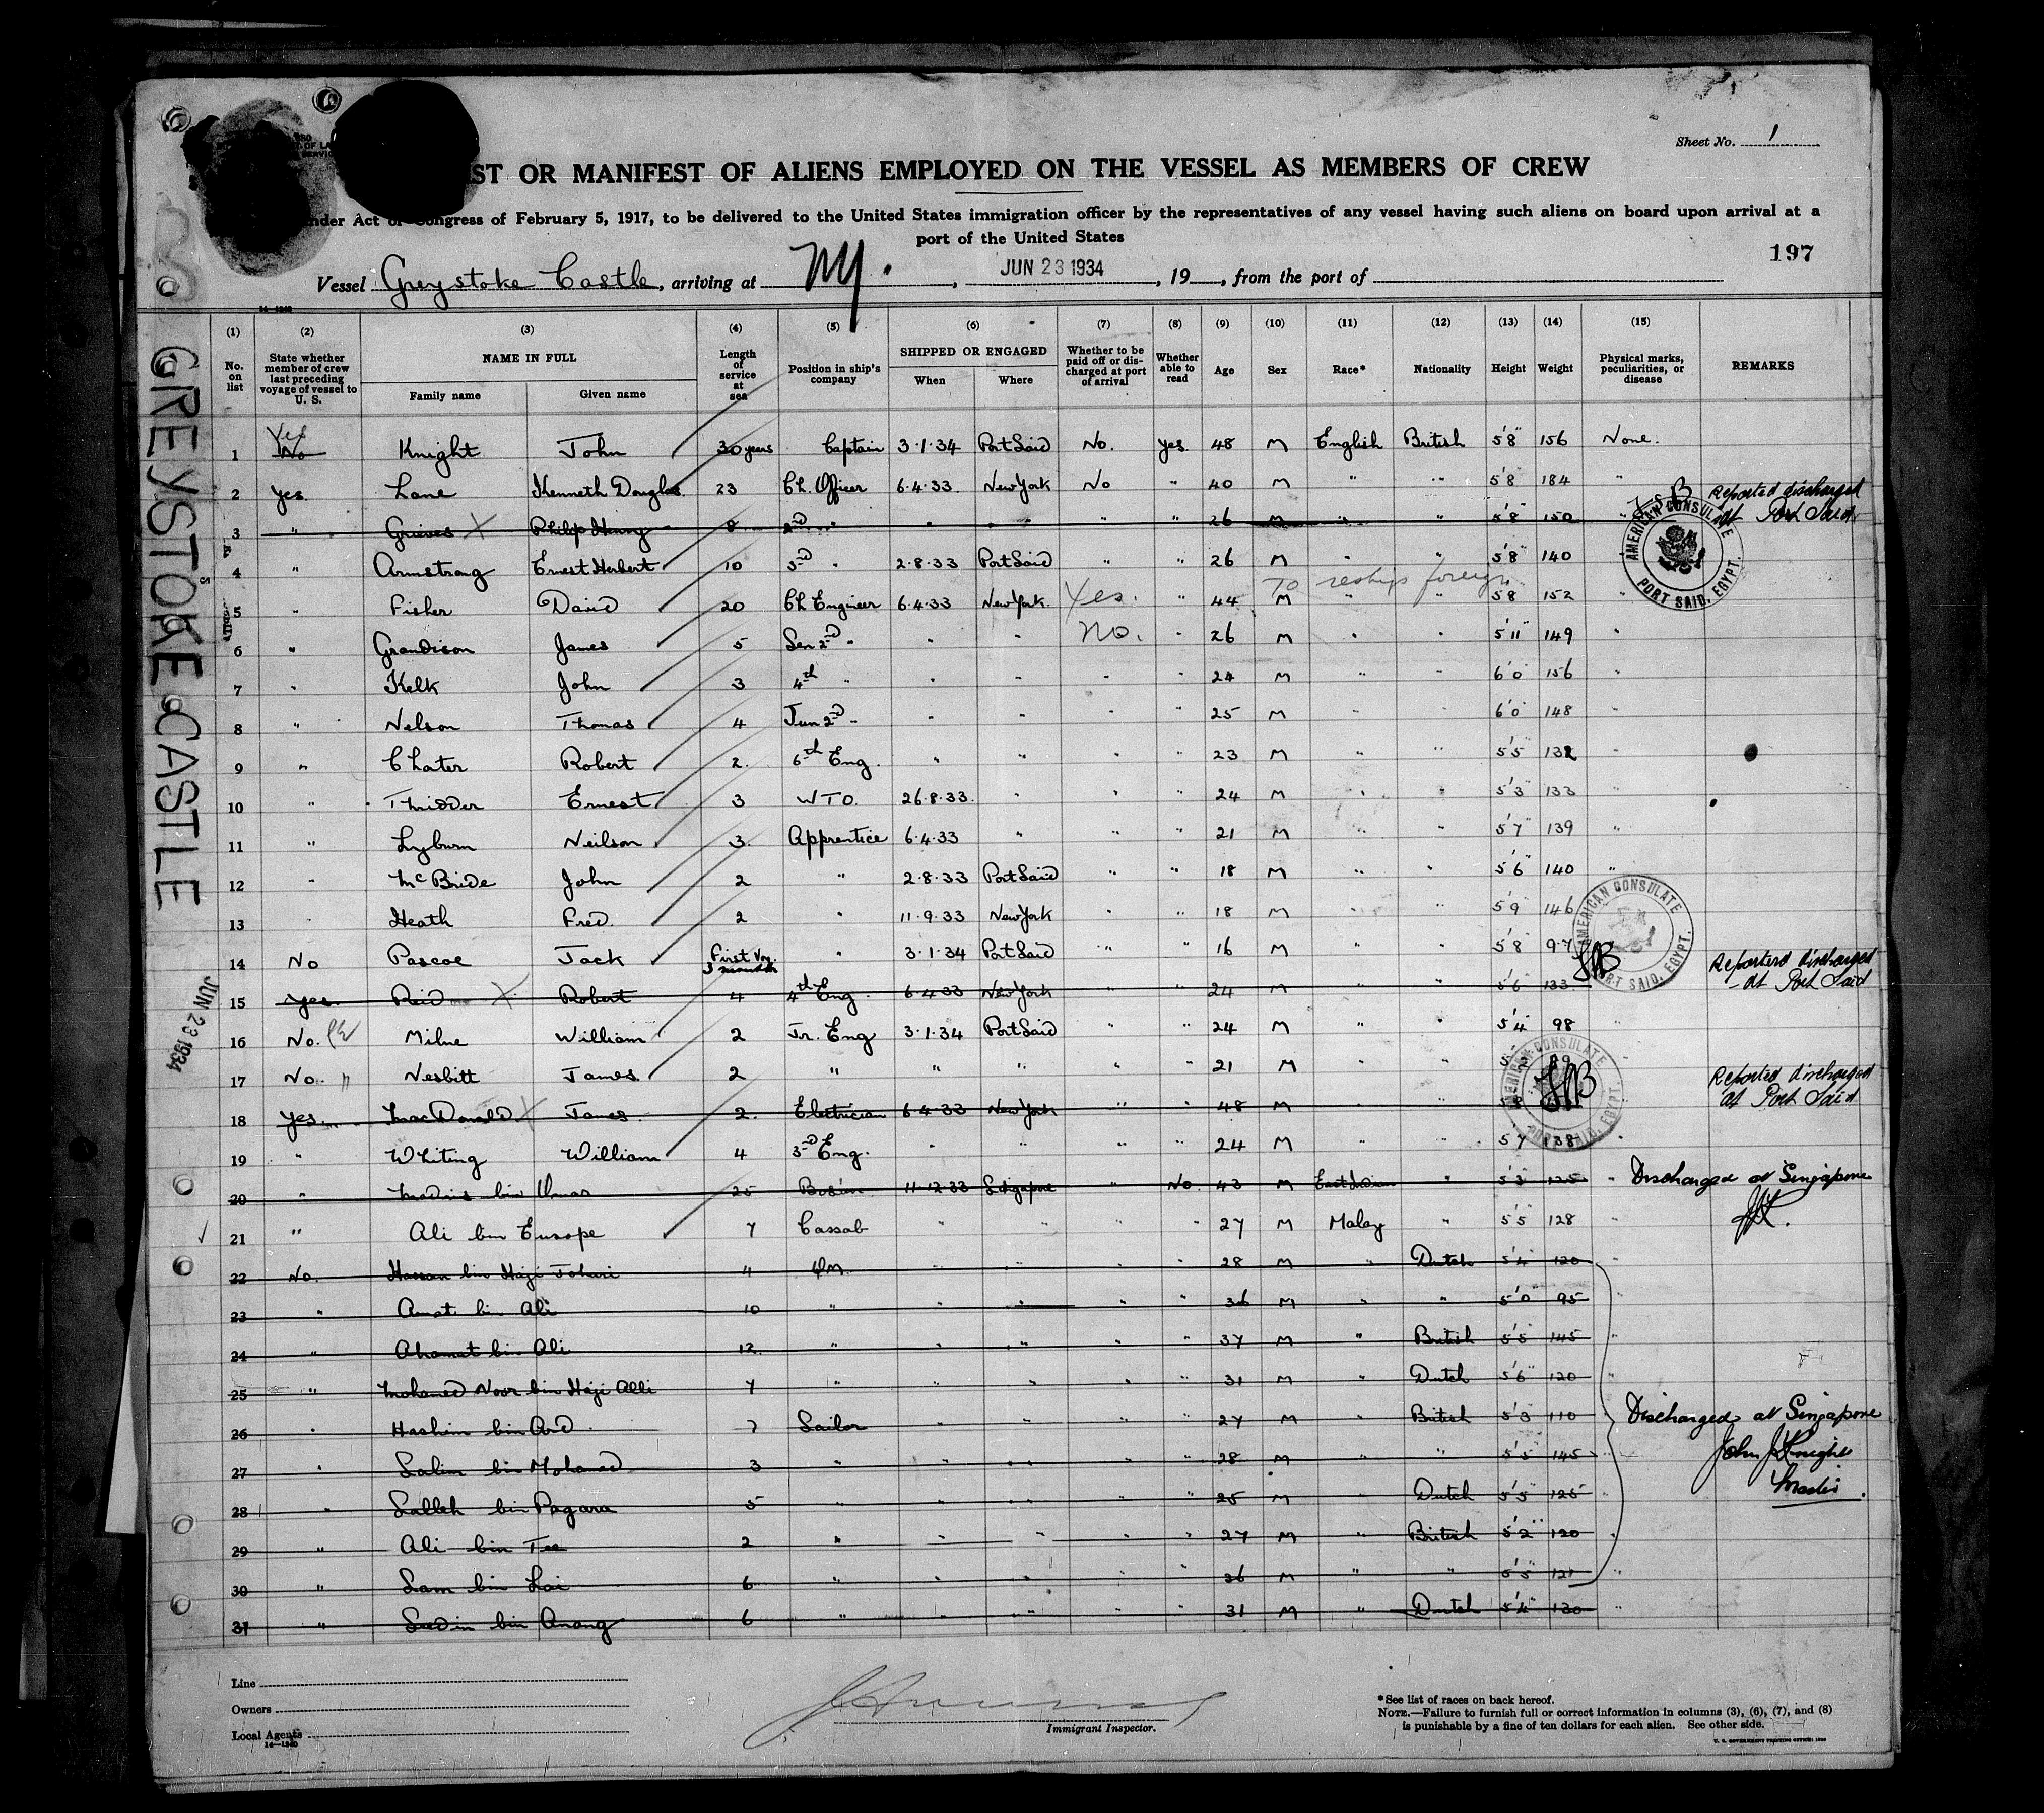 Sheet No. 1
ST OR MANIFEST OF ALIENS EMPLOYED ON THE VESSEL AS MEMBERS OF CREW
nder Act of Congress of February 5, 1917, to be delivered to the United States immigration officer by the representatives of any vessel having such aliens on board upon arrival at a
port of the United States
197
Vessel Greystoke Castle, arriving at NY. , JUN 23 1934, 19 , from the port of
GREYSTOKE CASTLE
JUN 23 1934
(1) (2) (3) (4) (5) (6) (7) (8) (9) (10) (11) (12) (13) (14) (15)
No. on list
State whether member of crew last preceding voyage of vessel to U. S.
NAME IN FULL
Family name Given name
Length of service at sea
Position in ship's company
SHIPPED OR ENGAGED
When Where
Whether to be paid off or discharged at port of arrival
Whether able to read
Age Sex Race* Nationality Height Weight
Physical marks, peculiarities, or disease
REMARKS
1 Yes No Knight John 30 years Captain 3.1.34 Port Said No. Yes. 48 M English British 5'8" 156 None.
2 Yes. Lane Kenneth Douglas. 23 Ch. Officer 6.4.33. New York No " 40 M " " 5'8 184 " Reported discharged at Port Said
3 " Grieves X Philip Henry 8 2nd " " " " " 26 M " " 5'8" 150 "
AMERICAN CONSULATE PORT SAID, EGYPT.
4 " Armstrong Ernest Herbert 10 3rd " 2.8.33 Port Said " " 26 M " " 5'8" 140
5 " Fisher David 20 Ch. Engineer 6.4.33 New York. Yes. " 44 M " " 5'8 152 " To reship foreign
6 " Grandison James 5 Sen 2nd " " " No. " 26 M " " 5'11" 149 "
7 " Kelk John 3 4th " " " " " 24 M " " 6'0 156 "
8 " Nelson Thomas 4 Jun 2nd " " " " " 25 M " " 6'0" 148 "
9 " Chater Robert 2. 6th Eng. " " " " 23 M " " 5'5 132 "
10 " Thridder Ernest 3 W T O. 26.8.33. " " " 24 M " " 5'3" 133 "
11 " Lyburn Neilson 3. Apprentice 6.4.33 " " " 21 M " " 5'7" 139 "
12 " McBride John 2 " 2.8.33 Port Said " " 18 M " " 5'6" 140 "
13 " Heath Fred. 2 " 11.9.33 New York " " 18 M " " 5'9" 146
AMERICAN CONSULATE PORT SAID, EGYPT.
14 No Pascoe Jack First Voy. 3 months " 3.1.34 Port Said " " 16 M " " 5'8" 97 Reported discharged at Port Said
15 Yes. Reid X Robert 4 4th Eng. 6.4.33 New York " " 24 M " " 5'6" 133
16 No. Milne William 2 Jr. Eng 3.1.34 Port Said " " 24 M " " 5'4" 98 "
AMERICAN CONSULATE PORT SAID, EGYPT
17 No. " Nesbitt James. 2 " " " " " 21 M " " Reported discharged at Port Said
18 Yes. MacDonald X James 2. Electrician 6.4.33 New York " " 48 M " "
19 " Whiting William 4 3rd Eng. " " " " 24 M " " 5'7 138 "
20 " bin Omar 25 Bos'un 11.12.33 Singapore " No. 43 M East Indian " 5'3" 125 " Discharged at Singapore
21 " Ali bin Eusope 7 Cassab " " " " 27 M Malay " 5'5" 128 "
22 No. Hassan bin Haji Johari 4 QM. " " " " 28 M " Dutch 5'4" 120
23 " Amat bin Ali 10 " " " " " 36 M " " 5'0" 95 "
24 " Ahamat bin Ali 12. " " " " " 37 M " British 5'5" 145 "
25 " Mohamed Noor bin Haji Alli 7 " " " " " 31 M " Dutch 5'6" 120 "
26 " Hashim bin 7 Sailor " " " " 27 M " British 5'3 110 Discharged at Singapore
27 " Salim bin Mohamed 3 " " " " " 28 M " " 5'5" 145 " John J Knight
28 " Salleh bin Pagara 5 " " " " " 25 M " Dutch 5'5" 125 " Master.
29 " Ali bin Tee 2 " " " " " 27 M " British 5'2" 120 "
30 " Sam bin Lai 6 " " " " " 36 M " " 5'5" 121 "
31 " bin Anang 6 " " " " " 31 M " Dutch 5'4" 130 "
Line
Owners
Local Agents
14—1240
Immigrant Inspector.
*See list of races on back hereof.
NOTE.—Failure to furnish full or correct information in columns (3), (6), (7), and (8)
is punishable by a fine of ten dollars for each alien. See other side.
U. S. GOVERNMENT PRINTING OFFICE